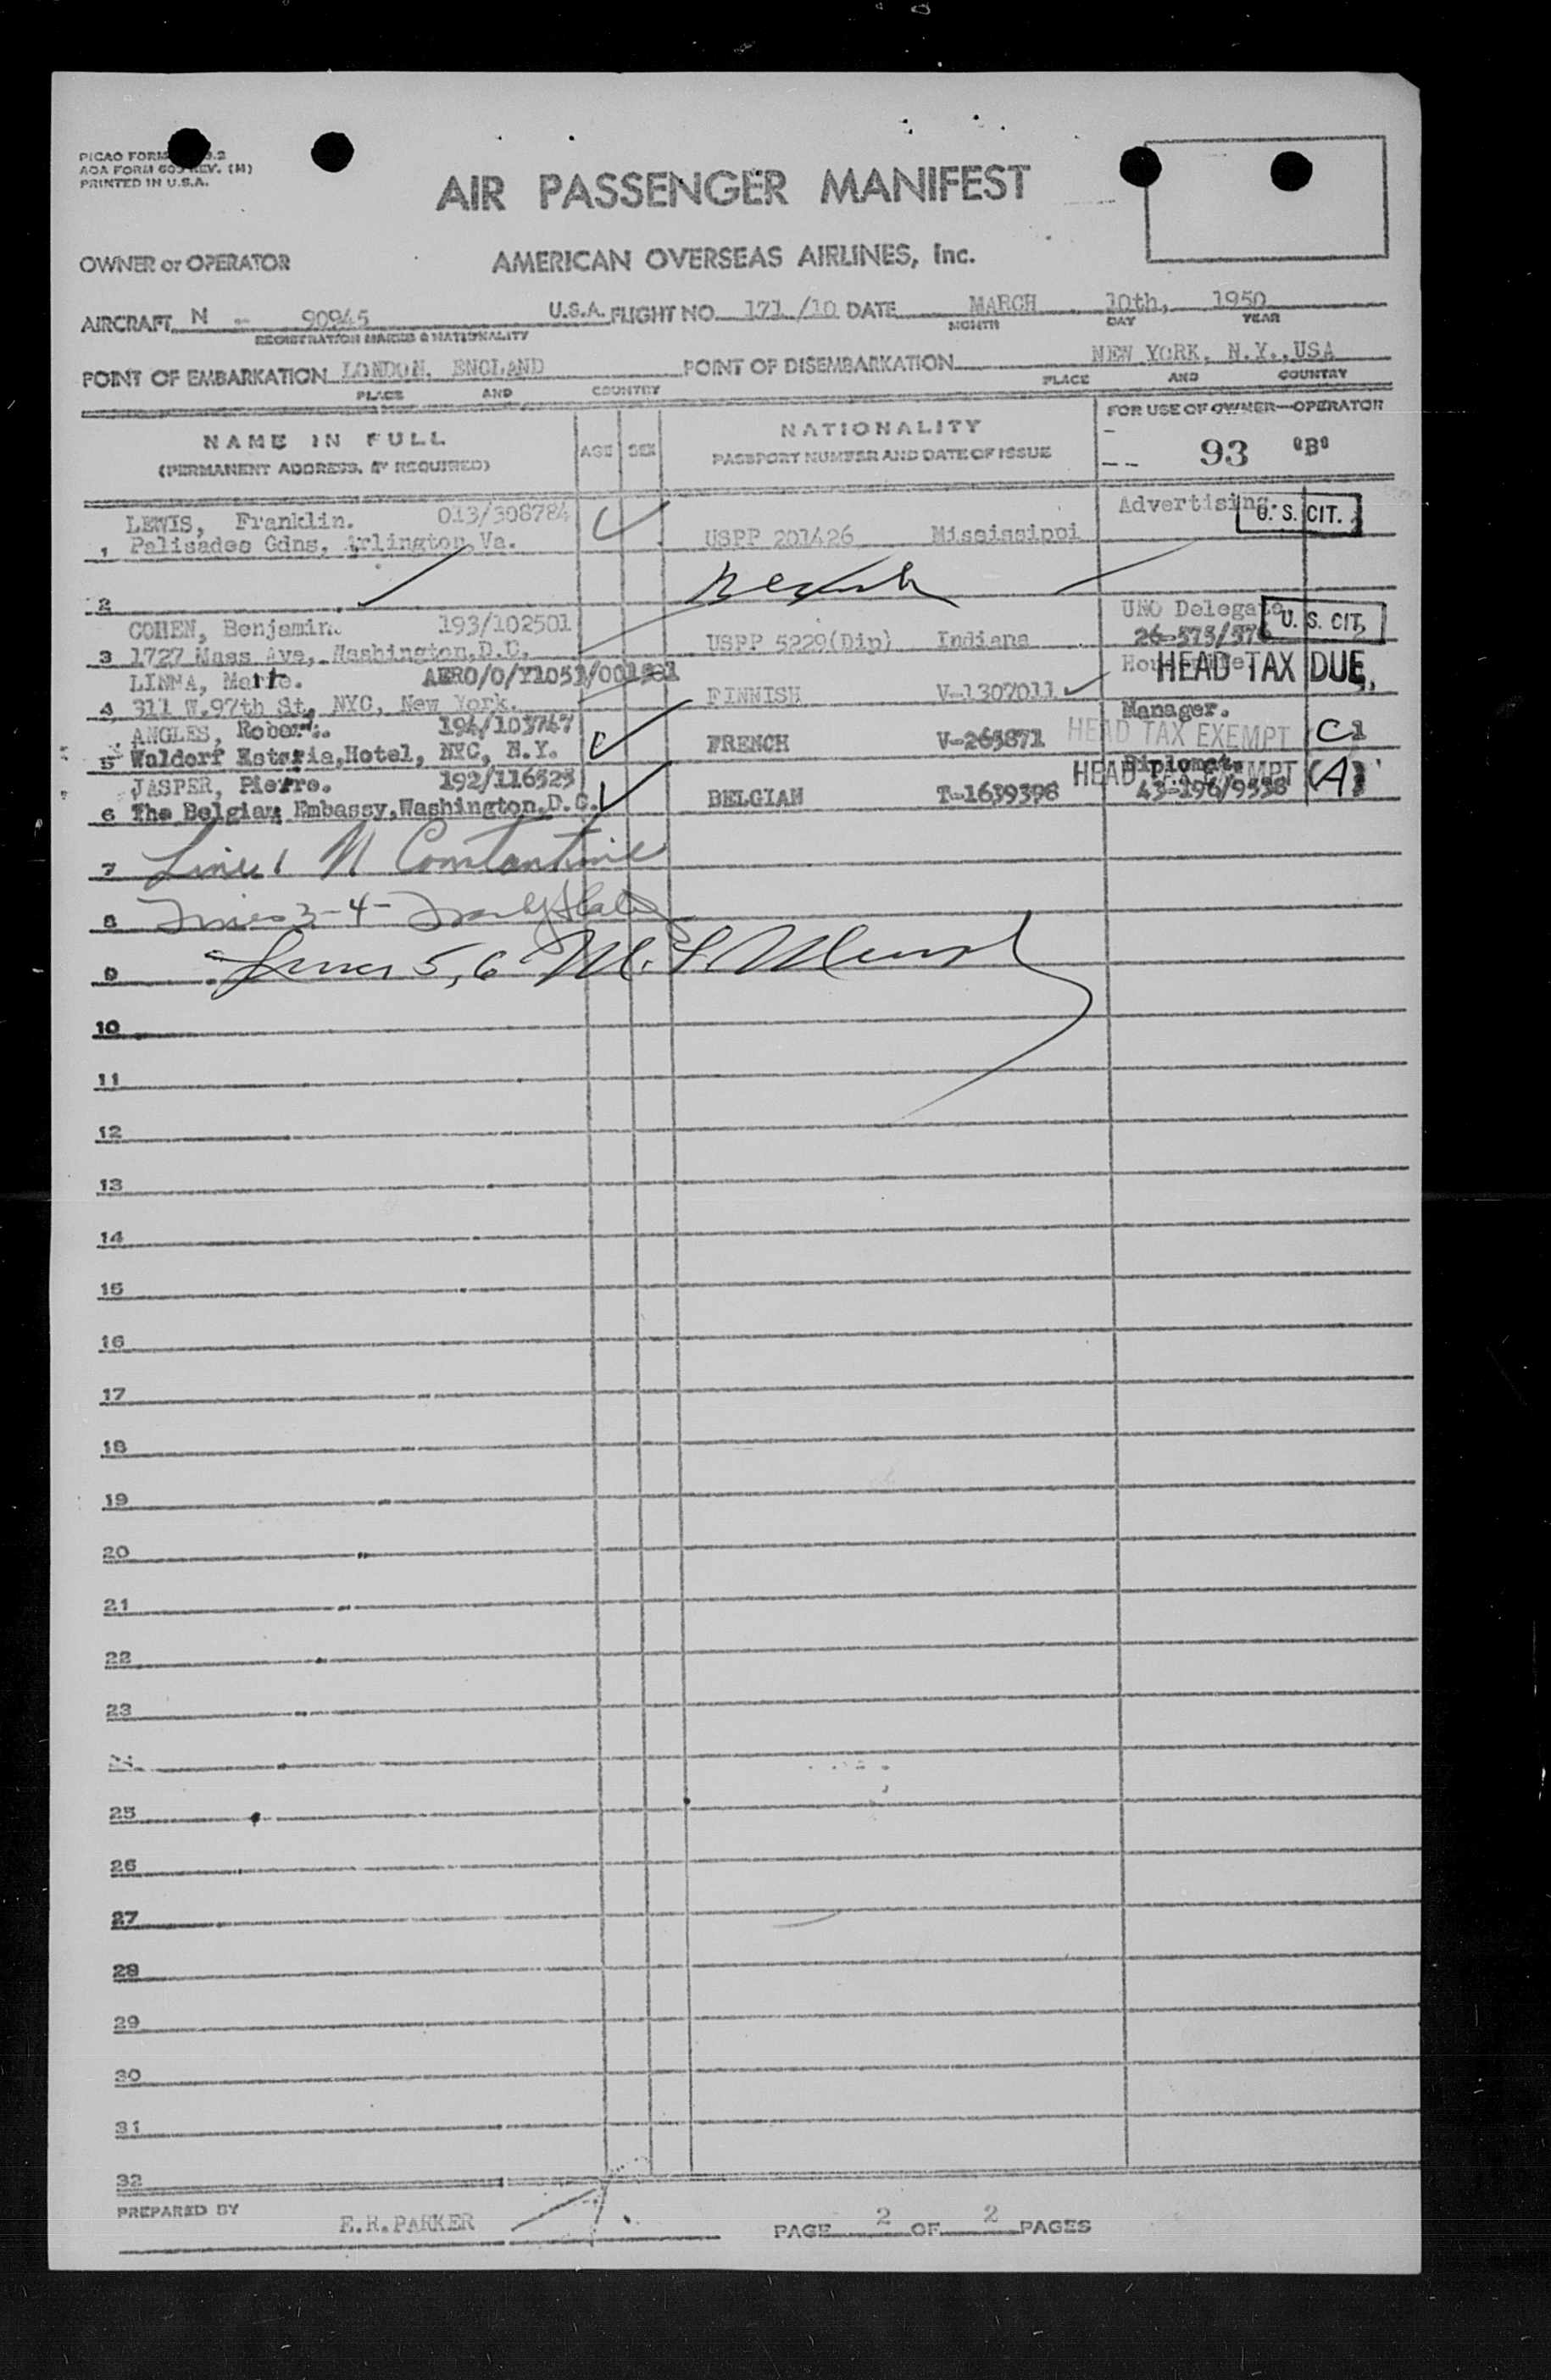 PICAO FORM
AOA FORM 603 REV. (M)
PRINTED IN U.S.A.
AIR PASSENGER MANIFEST
OWNER or OPERATOR AMERICAN OVERSEAS AIRLINES, Inc.
AIRCRAFT N - 90945 U.S.A. FLIGHT NO 171/10 DATE MARCH 10th, 1950
REGISTRATION MARKS & NATIONALITY MONTH DAY YEAR
POINT OF EMBARKATION LONDON, ENGLAND POINT OF DISEMBARKATION NEW YORK, N.Y., USA
PLACE AND COUNTRY PLACE AND COUNTRY
NAME IN FULL
(PERMANENT ADDRESS, IF REQUIRED)
AGE SEX
NATIONALITY
PASSPORT NUMBER AND DATE OF ISSUE
FOR USE OF OWNER—OPERATOR
93 "B"
LEWIS, Franklin. 013/308784 Advertising. U. S. CIT.
1 Palisades Gdns, Arlington, Va. USPP 201426 Mississippi
2
COHEN, Benjamin. 193/102501 UNO Delegate U. S. CIT.
3 1727 Mass Ave, Washington, D.C. USPP 5229(Dip) Indiana
LINNA, AERO/O/ Housewife HEAD TAX DUE
4 311 W.97th St, NYC, New York. FINNISH V-1307011
ANGLES, Robert. Manager.
5 Waldorf Hotel, NYC, N.Y. FRENCH V-265871 HEAD TAX EXEMPT C1
JASPER, Pierre. 192/116523 Diplomat. HEAD TAX EXEMPT (A)
6 The Belgian Embassy, Washington, D.C. BELGIAN T-1639398 43-196/9538
7 Line 1 N Constantine
8 Lines 3-4-
9 Lines 5, 6 M.
10
11
12
13
14
15
16
17
18
19
20
21
22
23
25
26
27
28
29
30
31
32
PREPARED BY E.H.PARKER PAGE 2 OF 2 PAGES